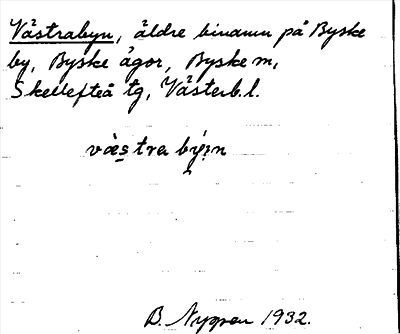 Västrabyn, äldre binamn på Byske
by, Byske ägor, Byske m,
Skellefteå tg, Västerb.l.
väs̲tra bỵ́ı̣n
B. Nygren 1932.